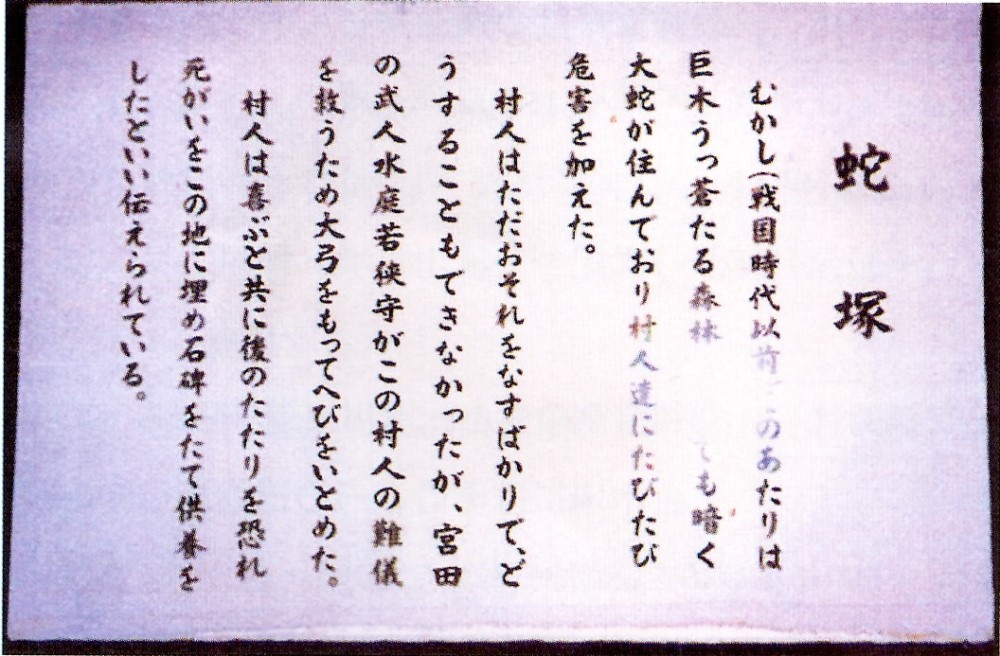 蛇塚
むかし(戦国時代以前)このあたりは
巨木うっ蒼たる森林 ても暗く
大蛇が住んでおり村人達にたびたび
危害を加えた。
村人はただおそれをなすばかりで、ど
うすることもできなかったが、宮田
の武人水庭若狭守がこの村人の難儀
を救うため大弓をもってへびをいとめた。
村人は喜ぶと共に後のたたりを恐れ
死がいをこの地に埋め石碑をたて供養を
したといい伝えられている。